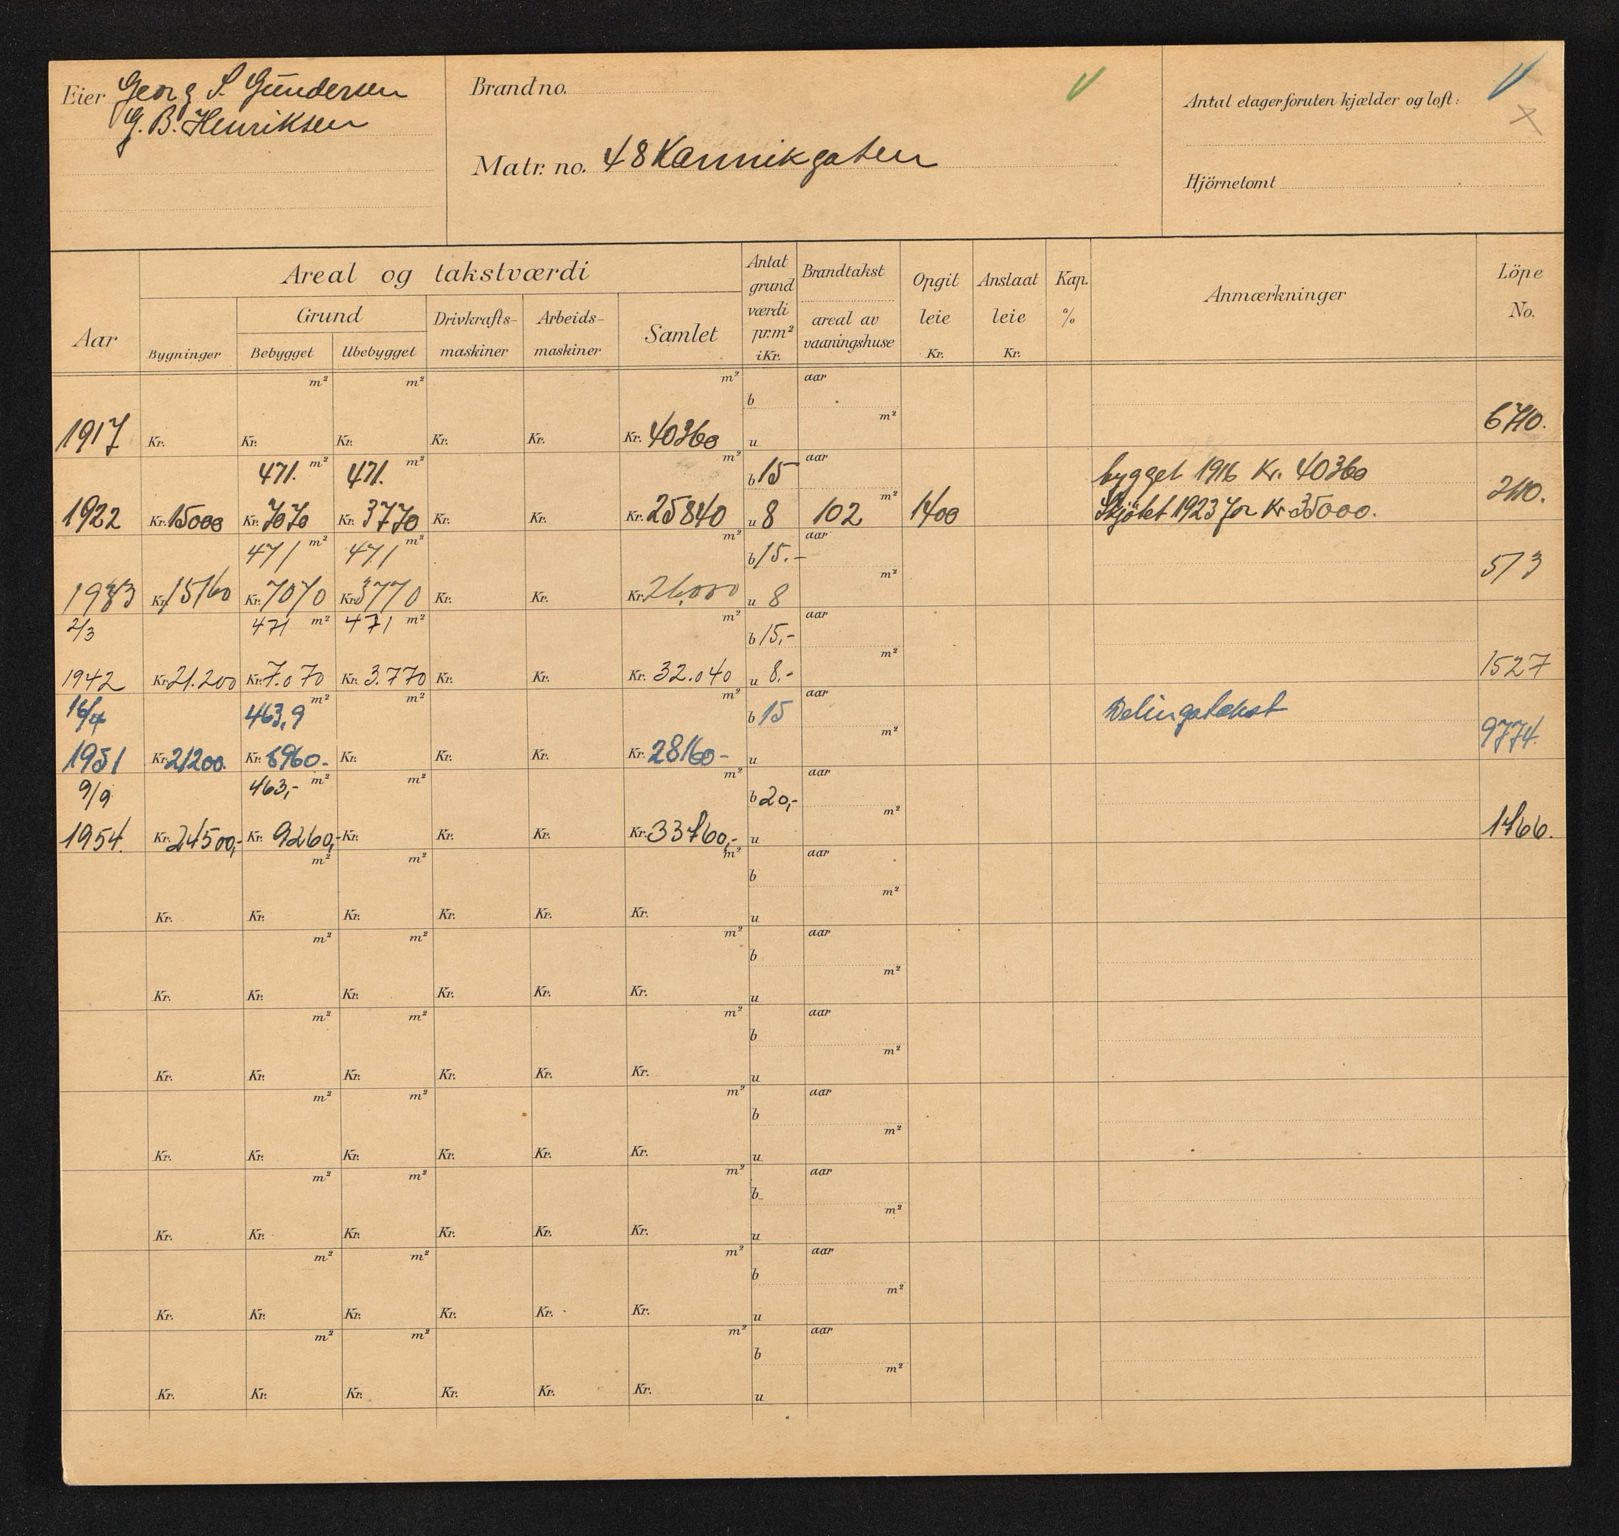 Eier Georg S. Gundersen
G. B. Henriksen
Brand no.
Matr. no. 48 Kannikgaten
Antal etager foruten kjælder og loft:
Hjörnetomt
Aar
Areal og takstværdi
Bygninger
Grund
Bebygget
Ubebygget
Drivkrafts-
maskiner
Arbeids-
maskiner
Samlet
Antat
grund
værdi
pr. m²
i Kr.
Brandtakst
areal av
vaaningshuse
Opgit
leie
Kr.
Anslaat
leie
Kr.
Kap.
%
Anmærkninger
Löpe
No.
m² m² m² b aar
m²
1917 Kr. Kr. Kr. Kr. Kr. Kr. 40360 u 6710.
471. m² 471. m² m² b 15 aar bygget 1916 Kr. 40360
1922 Kr. 15000 Kr. 7070 Kr. 3770 Kr. Kr. Kr. 25840 u 8 102 m² 1400 Skjötet 1923 for Kr 35000. 210.
471 m² 471 m² m² b 15.- aar
m²
1933 Kr. 15160 Kr. 7070 Kr. 3770 Kr. Kr. Kr. 26,000 u 8 513
2/3 471 m² 471 m² m² b 15,- aar
m²
1942 Kr. 21.200 Kr. 7.070 Kr. 3.770 Kr. Kr. Kr. 32.040 u 8.- 1527
16/4 463,9 m² m² m² b 15 aar Delingstakst
m²
1951 Kr. 21200. Kr. 6960.- Kr. Kr. Kr. Kr. 28160- u 9774.
9/9 463,- m² m² m² b 20,- aar
m²
1954. Kr. 24500,- Kr. 9260,- Kr. Kr. Kr. Kr. 33760,- u 1766.
m² m² m² b aar
m²
Kr. Kr. Kr. Kr. Kr. Kr. u
m² m² m² b aar
m²
Kr. Kr. Kr. Kr. Kr. Kr. u
m² m² m² b aar
m²
Kr. Kr. Kr. Kr. Kr. Kr. u
m² m² m² b aar
m²
Kr. Kr. Kr. Kr. Kr. Kr. u
m² m² m² b aar
m²
Kr. Kr. Kr. Kr. Kr. Kr. u
m² m² m² b aar
m²
Kr. Kr. Kr. Kr. Kr. Kr. u
m² m² m² b aar
m²
Kr. Kr. Kr. Kr. Kr. Kr. u